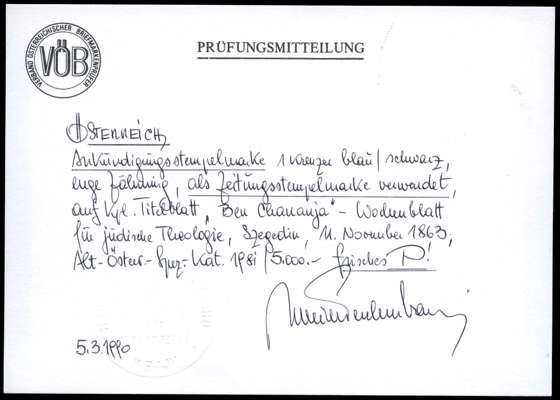 VERBAND ÖSTERREICHISCHER BRIEFMARKENPRÜFER
VÖB
PRÜFUNGSMITTEILUNG
ÖSTERREICH,
Ankündigungsstempelmarke 1 Kreuzer blau/schwarz,
enge Zähnung, als Zeitungsstempelmarke verwendet,
auf kpl. Titelblatt „Ben Chananja" - Wochenblatt
für jüdische Theologie, Szegedin, 11. November 1863;
Alt-Österr.-Spez.-Kat. 198i /5.000.- frisches !
5.3.1990